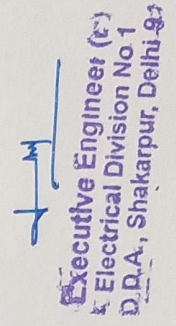 Executive Engineer (E)
Electrical Division No. 1
D.D.A., Shakarpur, Delhi-92